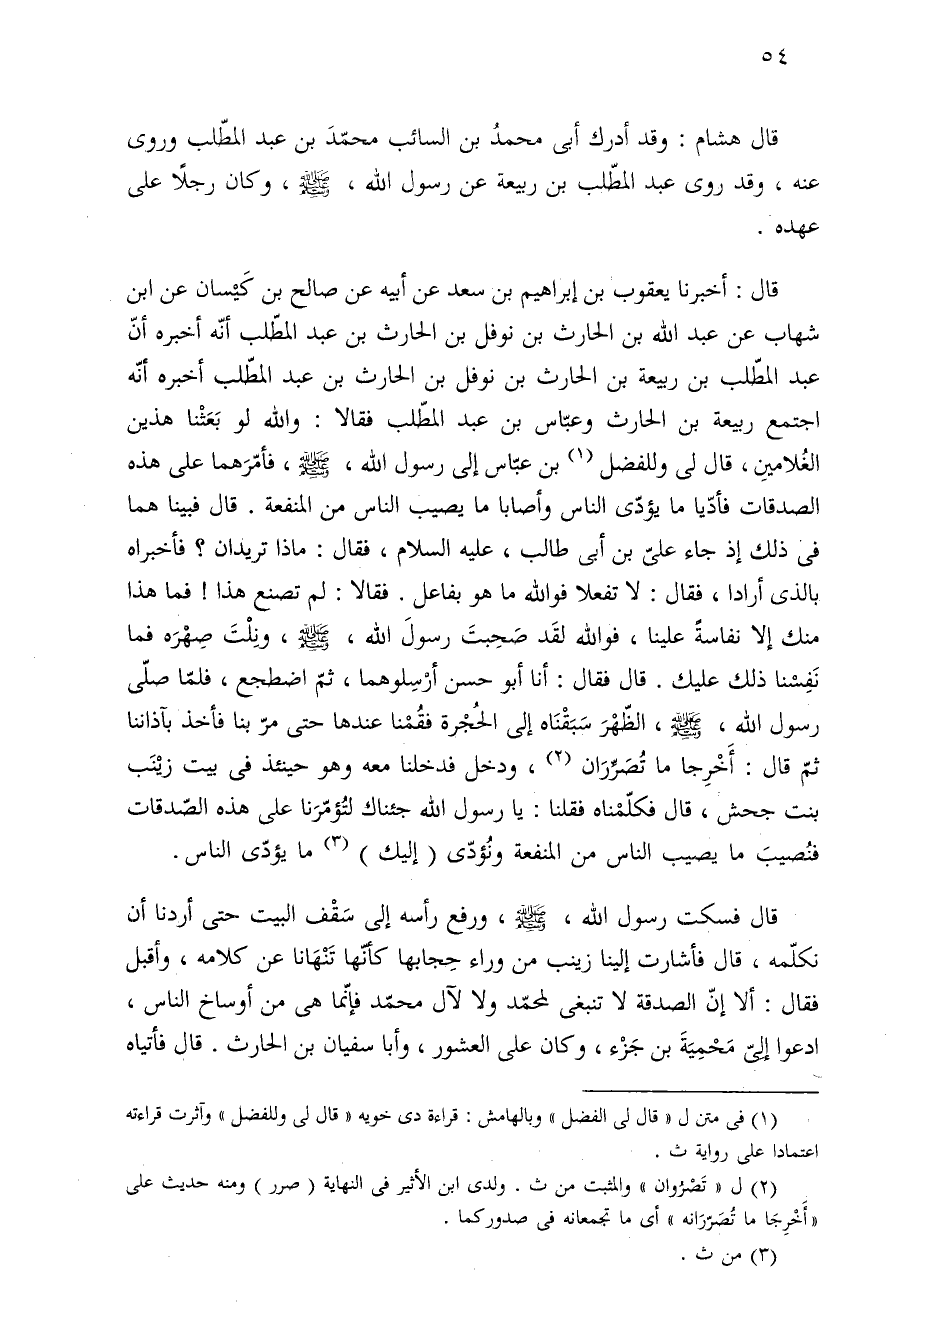 ٥٤
قال هشام : وقد أدرك أبى محمدُ بن السائب محمّدَ بن عبد المطّلب وروى
عنه ، وقد روى عبد المطّلب بن ربيعة عن رسول الله ، ﷺ ، وكان رجلًا على
عهده .
قال : أخبرنا يعقوب بن إبراهيم بن سعد عن أبيه عن صالح بن كَيْسان عن ابن
شهاب عن عبد الله بن الحارث بن نوفل بن الحارث بن عبد المطّلب أنّه أخبره أنّ
عبد المطّلب بن ربيعة بن الحارث بن نوفل بن الحارث بن عبد المطّلب أخبره أنّه
اجتمع ربيعة بن الحارث وعبّاس بن عبد المطّلب فقالا : والله لو بَعَثْنا هذين
الغُلامينِ ، قال لى وللفضل (١) بن عبّاس إلى رسول الله ، ﷺ ، فأمّرَهما على هذه
الصدقات فأدّيا ما يؤدّى الناس وأصابا ما يصيب الناس من المنفعة . قال فبينا هما
فى ذلك إذ جاء علىّ بن أبى طالب ، عليه السلام ، فقال : ماذا تريدان ؟ فأخبراه
بالذى أرادا ، فقال : لا تفعلا فوالله ما هو بفاعل . فقالا : لم تصنع هذا ! فما هذا
منك إلا نفاسةً علينا ، فوالله لقَد صَحِبتَ رسولَ الله ، ﷺ ، ونِلْتَ صِهْرَه فما
نَفِسْنا ذلك عليك . قال فقال : أنا أبو حسن أرْسِلوهما ، ثمّ اضطجع ، فلمّا صلّى
رسول الله ، ﷺ ، الظّهْرَ سَبَقْنَاه إلى الحُجْرة فقُمْنا عندها حتى مرّ بنا فأخذ بآذاننا
ثمّ قال : أَخْرِجا ما تُصَرِّرَان (٢) ، ودخل فدخلنا معه وهو حينئذ فى بيت زيْنَب
بنت جحش ، قال فكلّمْناه فقلنا : يا رسول الله جئناك لتُؤمّرَنا على هذه الصّدقات
فنُصيبَ ما يصيب الناس من المنفعة ونُؤدّى ( إليك ) (٣) ما يؤدّى الناس .
قال فسكت رسول الله ، ﷺ ، ورفع رأسه إلى سَقْف البيت حتى أردنا أن
نكلّمه ، قال فأشارت إلينا زينب من وراء حِجابها كأنّها تَنْهَانا عن كلامه ، وأقبل
فقال : ألا إنّ الصدقة لا تنبغى لمحمّد ولا لآل محمّد فإنّما هى من أوساخ الناس ،
ادعوا إلىّ مَحْمِيَةَ بن جَزْء ، وكان على العشور ، وأبا سفيان بن الحارث . قال فأتياه
(١) فى متن ل « قال لى الفضل » وبالهامش : قراءة دى خويه « قال لى وللفضل » وآثرت قراءته
اعتمادا على رواية ث .
(٢) ل « تَصْرُوان » والمثبت من ث . ولدى ابن الأثير فى النهاية ( صرر ) ومنه حديث على
« أَخْرِجَا ما تُصَرّرَانه » أى ما تجمعانه فى صدوركما .
(٣) من ث .